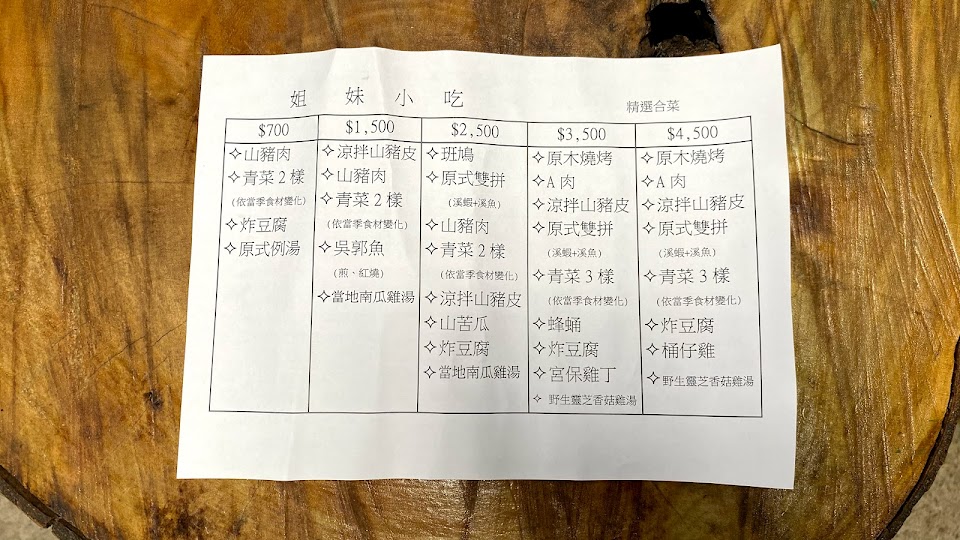 姐妹小吃
精選合菜
$700
✧山豬肉
✧青菜2樣
(依當季食材變化)
✧炸豆腐
✧原式例湯
$1,500
✧涼拌山豬皮
✧山豬肉
✧青菜2樣
(依當季食材變化)
✧吳郭魚
(煎、紅燒)
✧當地南瓜雞湯
$2,500
✧班鳩
✧原式雙拼
(溪蝦+溪魚)
✧山豬肉
✧青菜2樣
(依當季食材變化)
✧涼拌山豬皮
✧山苦瓜
✧炸豆腐
✧當地南瓜雞湯
$3,500
✧原木燒烤
✧A肉
✧涼拌山豬皮
✧原式雙拼
(溪蝦+溪魚)
✧青菜3樣
(依當季食材變化)
✧蜂蛹
✧炸豆腐
✧宮保雞丁
✧野生靈芝香菇雞湯
$4,500
✧原木燒烤
✧A肉
✧涼拌山豬皮
✧原式雙拼
(溪蝦+溪魚)
✧青菜3樣
(依當季食材變化)
✧炸豆腐
✧桶仔雞
✧野生靈芝香菇雞湯